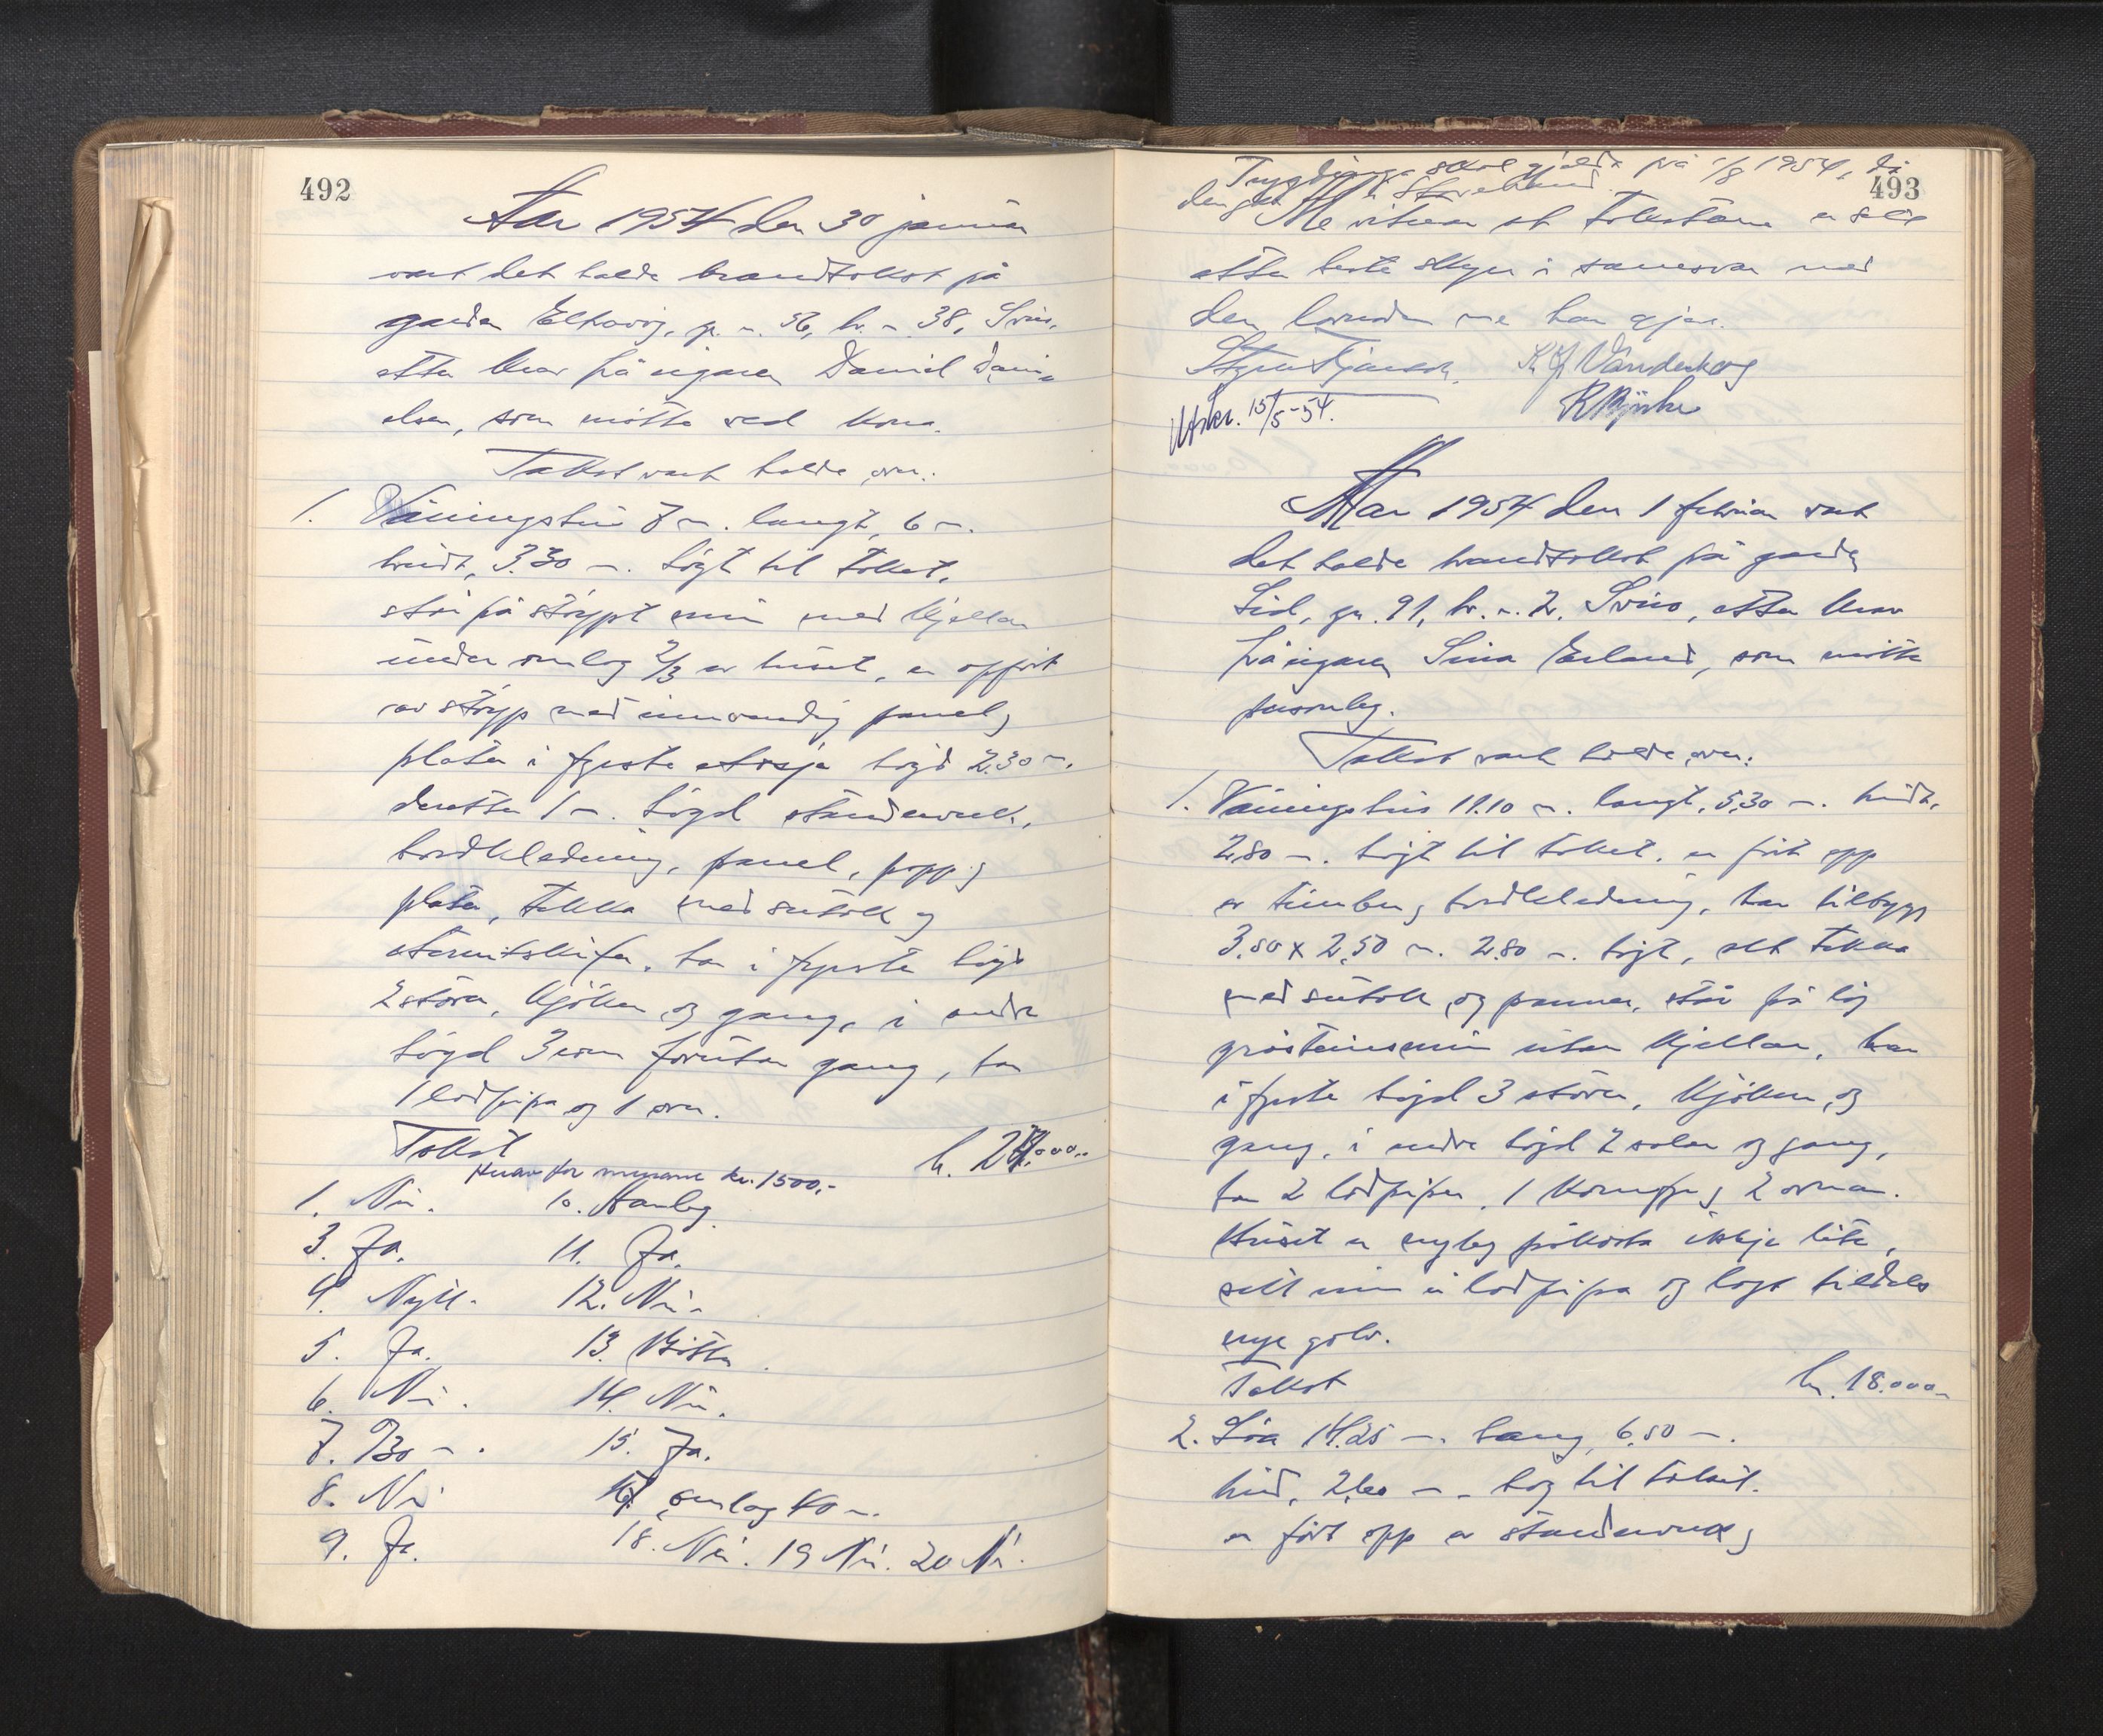 492
Aar 1954 den 30 januar
vart det halde brandtakst på
garden Eltravåg, g. n. 56, br. n. 38, Sveio,
etter krav frå eigaren Daniel Dani-
elsen, som møtte ved kona.
Takst vart halde over:
1. Våningshus 7 m. langt, 6 m.
breidt, 3.30 m. høgt til taket,
står på støypt mur med kjellar
under omlag 2/3 av huset, er oppført
av støyp med innvendig panel og
plater i fyrste etasje høgd 2.30 m.
deretter 1 m. høgd stenderverk,
bordkledning, panel, papp og
plater, tekka med sutak og
eternitskifer, har i fyrste høgd
2 stover, kjøken og gang, i andre
høgd 3 rom forutan gang, har
1 lodpipa og 1 omn.
Takst kr. 24.000.-
Herav for murane kr. 1500,-
1. Nei. 10. Vanleg.
3. Ja. 11. Ja.
4. Nytt. 12. Nei.
5. Ja. 13. Bøtter.
6. Nei. 14. Nei.
7. 730 m. 15. Ja.
8. Nei 17. omlag 40 m.
9. Ja. 18. Nei. 19 Nei. 20 Nei.
493
Trygdinga skal gjelda frå 1/8 1954, då
den går i Storebrand.
Me vitnar at takstane er sett
etter beste skjøn i samsvar med
den lovnaden me har gjeve.
K J Vandaskog
R Bjørke
Utskr. 15/5-54.
Aar 1954 den 1 februar vart
det halde brandtakst på garden
Lid, gn. 91, br. n. 2, Sveio, etter krav
frå eigaren Sina Erland, som møtte
personleg.
Takst vart halde over:
1. Våningshus 11.10 m. langt, 5,30 m. breidt,
2,80 m. høgt til taket, er ført opp
av timber og bordkledning, har tilbygg
3,00 x 2,50 m. 2.80 m. høgt, alt tekka
med sutak og pannor, står på låg
gråsteinsmur utan kjellar, har
i fyrste høgd 3 stover, kjøken og
gang, i andre høgd 2 salar og gang,
har 2 lodpiper, 1 komfyr og 2 omnar.
Huset er nyleg påkosta ikkje lite,
sett inn ei lodpipa og lagt tildels
nye golv.
Takst kr. 18.000.-
2. Løa 14.25 m. lang, 6.50 m.
breid, 2,60 m. høg til taket.
er ført opp av stenderverk og